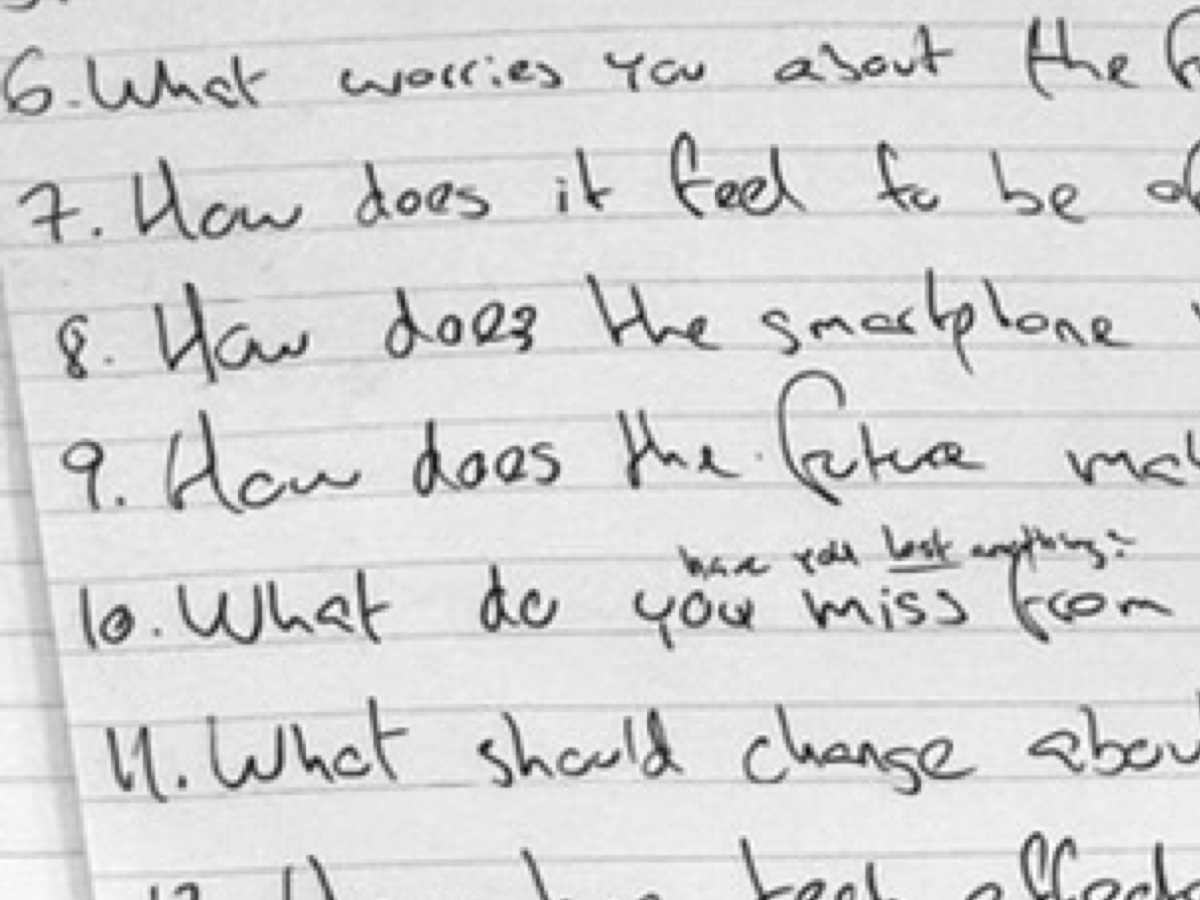 6. What worries you about the
7. How does it feel to be
8. How does the smartphone
9. How does the future
have you lost anything?
10. What do you miss from
11. What should change
12. How has tech